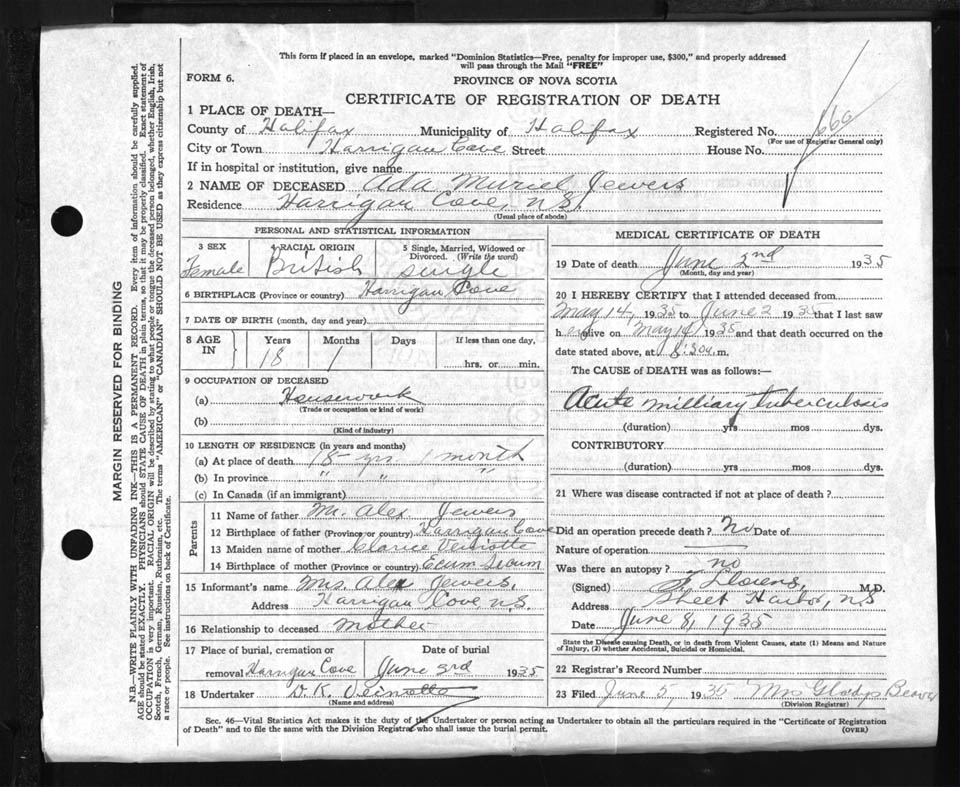 This form if placed in an envelope, marked "Dominion Statistics—Free, penalty for improper use, $300," and properly addressed
will pass through the Mail "FREE"
FORM 6.
PROVINCE OF NOVA SCOTIA
CERTIFICATE OF REGISTRATION OF DEATH
1 PLACE OF DEATH—
County of Halifax Municipality of Halifax Registered No.
(For use of Registrar General only)
City or Town Harrigan Cove Street House No.
If in hospital or institution, give name
2 NAME OF DECEASED Ada Muriel Jewers
Residence Harrigan Cove, N.S.
(Usual place of abode)
PERSONAL AND STATISTICAL INFORMATION
3 SEX 4 RACIAL ORIGIN 5 Single, Married, Widowed or
Divorced. (Write the word)
Female British single
6 BIRTHPLACE (Province or country) Harrigan Cove
7 DATE OF BIRTH (month, day and year)
8 AGE IN Years Months Days If less than one day,
18 1
hrs. or min.
9 OCCUPATION OF DECEASED
(a) Housework
(Trade or occupation or kind of work)
(b)
(Kind of industry)
10 LENGTH OF RESIDENCE (in years and months)
(a) At place of death 18 yrs. 1 month
(b) In province " " "
(c) In Canada (if an immigrant)
Parents
11 Name of father Mr. Alex Jewers
12 Birthplace of father (Province or country) Harrigan Cove
13 Maiden name of mother Clarice
14 Birthplace of mother (Province or country) Ecum Secum
15 Informant's name Mrs. Alex Jewers,
Address Harrigan Cove, N.S.
16 Relationship to deceased Mother
17 Place of burial, cremation or Date of burial
removal Harrigan Cove June 3rd 1935
18 Undertaker D. K.
(Name and address)
MEDICAL CERTIFICATE OF DEATH
19 Date of death June 2nd 1935
(Month, day and year)
20 I HEREBY CERTIFY that I attended deceased from
May 14, 1935 to June 2 1935 that I last saw
h er alive on May 14 1935 and that death occurred on the
date stated above, at 8:30 a.m.
The CAUSE of DEATH was as follows:—
Acute milliary tuberculosis
(duration) yrs mos dys.
CONTRIBUTORY
(duration) yrs mos dys.
21 Where was disease contracted if not at place of death?
Did an operation precede death? No Date of
Nature of operation
Was there an autopsy? no
(Signed) M.D.
Address Sheet Harbor, N.S
Date June 8, 1935
State the Disease causing Death, or in death from Violent Causes, state (1) Means and Nature
of Injury, (2) whether Accidental, Suicidal or Homicidal.
22 Registrar's Record Number
23 Filed June 5, 1935 Mrs Gladys Beaver
(Division Registrar)
Sec. 46—Vital Statistics Act makes it the duty of the Undertaker or person acting as Undertaker to obtain all the particulars required in the "Certificate of Registration
of Death" and to file the same with the Division Registrar who shall issue the burial permit.
(OVER)
MARGIN RESERVED FOR BINDING
N.B.—WRITE PLAINLY WITH UNFADING INK—THIS IS A PERMANENT RECORD. Every item of information should be carefully supplied.
AGE should be stated EXACTLY. PHYSICIANS should STATE CAUSE OF DEATH in plain terms, so that it may be properly classified. Exact statement of
OCCUPATION is very important. RACIAL ORIGIN will be described by stating to what people or tongue the deceased person belonged, whether English, Irish,
Scotch, French, German, Russian, Ruthenian, etc. The terms "AMERICAN" or "CANADIAN" SHOULD NOT BE USED as they express citizenship but not
a race or people. See instructions on back of Certificate.